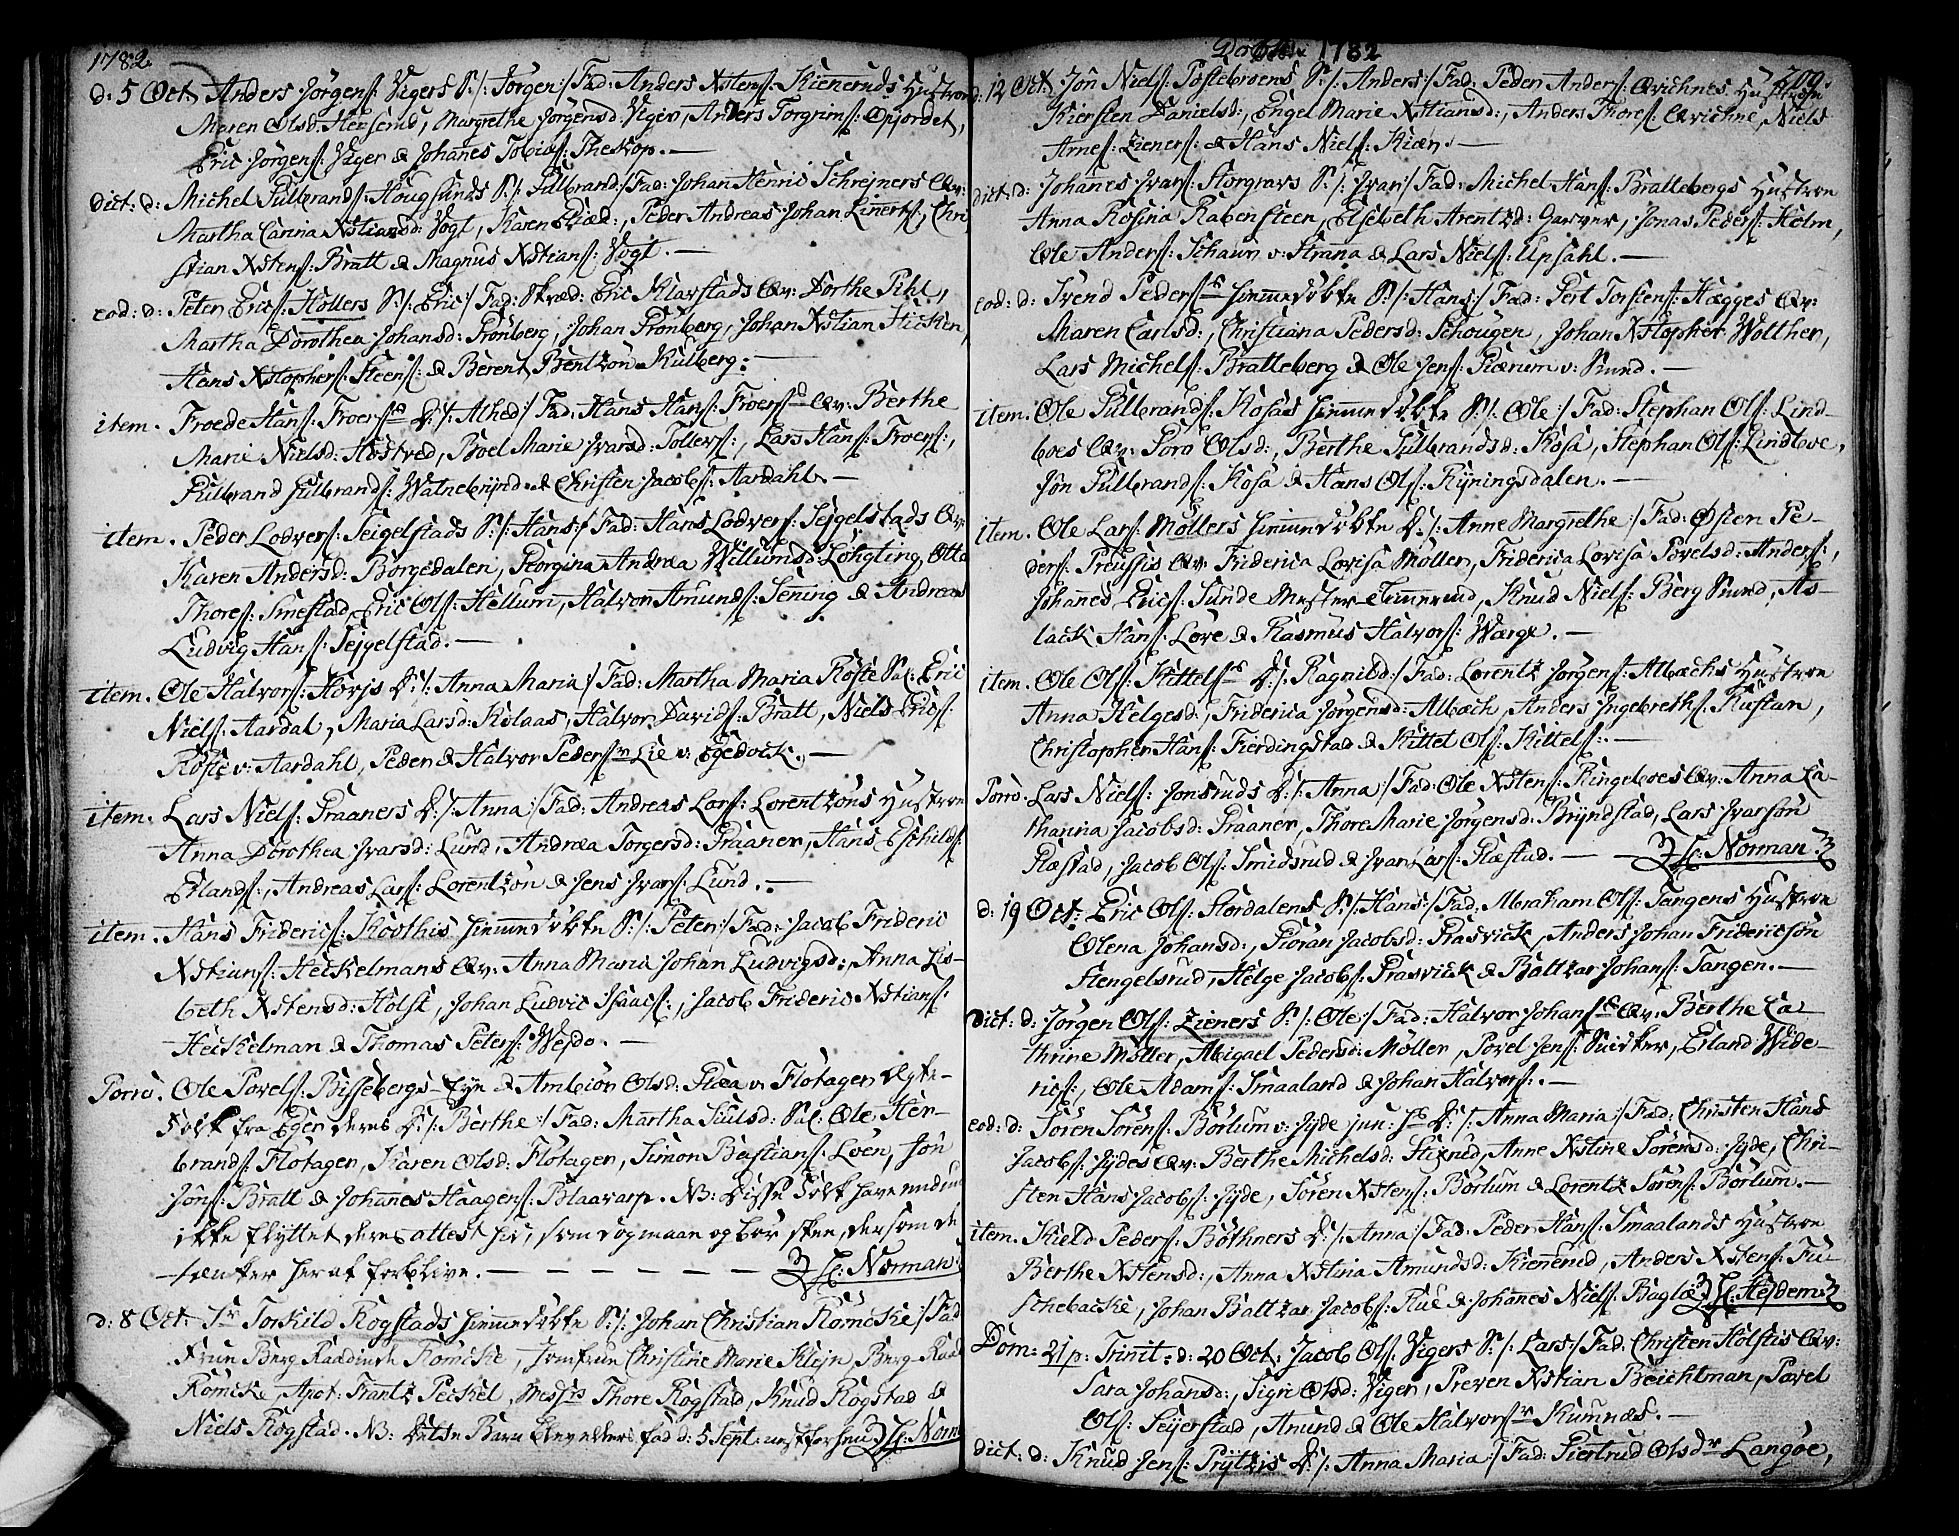 1782
d: 5 Oct. Anders Jörgens: Vigers S:/: Jörgen:/ Fad: Anders Xstens: Kieneruds Hustroe
Maren Olsd: Hersrud, Margrethe Jörgensd: Viger, Anders Torgrims: Opjordet,
Eric Jörgens: Viger & Johanes Tobias: Theskop. —
dict: d: Michel Gulbrands: Hougsunds S:/: Gulbrand:/ Fad: Johan Henric Schrejners Qv:
Martha Carina Xstiansd: Vogt, Karen Bæd:, Peder Andreas Johan Linerts:, Chri
stian Xstens: Bratt & Magnus Xstians: Vogt. —
eod: d: Peter Erics: Hollers S:/: Eric:/ Fad: Skræd: Eric Klavstads Qv: Dorthe Pihl,
Martha Dorothea Johansd: Grönberg, Johan Grönberg, Johan Xstian Hicken,
Hans Xstophers: Steens: & Berent Bentzon Kulberg: —
item. Froede Hans: Froers: D:/: Alhed:/ Fad: Hans Hans: Froers: Qv: Berthe
Marie Nielsd: Hostved, Boel Marie Ivarsd: Tollers:, Lars Hans: Froers:,
Gulbrand Gulbrands: Watnebrynd & Christen Jacobs: Aardahl. —
item. Peder Lodvers: Seigelstads S:/: Hans:/ Fad: Hans Lodvers: Sejgelstads Qv:
Karen Andersd: Borgedalen, Georgina Andrea Willumsd: Löngting, Otto
Thores: Smestad, Eric Ols: Hellum, Halvor Amunds: Sening & Andreas
Ludvig Hans: Sejgelstad. —
item. Ole Halvors: Horjs D:/: Anna Maria:/ Fad: Martha Maria Röste Sal: Eric
Niels: Aardal, Maria Larsd: Kolaas, Halvor Davids: Bratt, Niels Erics:
Röste v: Aardahl, Peder & Halvor Peders: Lie v: Egedock. —
item. Lars Niels: Praaners D:/: Anna:/ Fad: Andreas Lars: Lorentzöns Hustroe
Anna Dorothea Ivarsd: Lund, Andræa Torgersd: Praaner, Hans Eschilds:
Erlands:, Andreas Lars: Lorentzön & Jens Ivars: Lund. —
item. Hans Frideric: Koothis hiemmedöbte S:/: Peter:/ Fad: Jacob Frideric
Xstians: Heckelmans Qv: Anna Maria Johan Ludvigsd:, Anna Lis-
beth Xstensd: Holst, Johan Ludvic Isaacs:, Jacob Frideric Xstians:
Heckelman & Thomas Peters: Wejdo. —
Porro. Ole Povels: Bissebergs Eje & Ambiör Olsd: Giæa v: Flötagen Ægte-
folk fra Eger deres D:/: Berthe:/ Fad: Martha Juulsd: Sal: Ole Her-
brands: Flötagen, Karen Olsd: Flötagen, Simon Bastians: Loen, Jön
Jöns: Bratt & Johanes Haagens: Blaavarp. NB: Disse Folk have endnu
ikke flyttet deres attest hid, som dog maae og bör skee, dersom de
tænker her at forblive. — — — — — — H: Norman
d: 8 Oct: Sr Torkild Rogstads hiemmedöbte S:/: Johan Christian Römcke:/ Fad
Frue Berg Raadinde Römcke, Jomfrue Christine Marie Klejn, Berg Raad
Römcke, Apot: Frantz Peckel, Messrs Thore Rogstad, Knud Rogstad &
Niels Rogstad. NB: Dette Barn blev döbt d: 5 Sept: H: Norm
Döbte 1782
200
d: 12 Oct: Jön Niels: Postebroens S:/: Anders:/ Fad: Peder Anders: Qvichnes Hustroe
Kiersten Danielsd:, Engel Marie Xstiansd:, Anders Thores: Qvichne, Niels
Arnes: Zieners: & Hans Niels: Kiæn. —
dict: d: Johanes Ivars: Storgravs S:/: Ivar:/ Fad: Michel Hans: Brattebergs Hustroe
Anna Rosina Rabensteen, Elsebeth Arentzd: Garver, Jonas Peders: Helm,
Ole Anders: Schaun v: Strana & Lars Niels: Upsahl. —
eod: d: Svend Peders: hiemmedöbte S:/: Hans:/ Fad: Gert Torstens: Hægges Qv:
Maren Carlsd:, Christiana Pedersd: Schougen, Johan Xstopher Wolther,
Lars Michels: Bratteberg & Ole Jens: Giærum v: Sund. —
item. Ole Gulbrands: Kosas hiemmedöbte S:/: Ole:/ Fad: Stephan Ols: Lind-
boes Qv: Goro Olsd:, Berthe Gulbrandsd: Kosa, Stephan Ols: Lindboe,
Jön Gulbrands: Kosa & Hans Ols: Ryningsdalen. —
item. Ole Lars: Möllers hiemmedöbte D:/: Anne Margrethe:/ Fad: Østen Pe-
ders: Preussis Qv: Friderica Lovisa Möller, Friderica Lovisa Povelsd: Anders:,
Johanes Erics: Sunde Mester Tömerud, Knud Niels: Berg Sund, As-
lack Hans: Love & Rasmus Halvors: Wærge. —
item. Ole Ols: Kittels: D:/: Ragnild:/ Fad: Lorentz Jörgens: Albæchs Hustroe
Anna Helgesd:, Friderica Jörgensd: Albæch, Anders Ingebreths: Rustan,
Christopher Hans: Fierdingstad & Kittel Ols: Kittels: —
Porro. Lars Niels: Jonsruds D:/: Anna:/ Fad: Ole Xstens: Ringeboes Qv: Anna Ca-
tharina Jacobsd: Praaner, Thore Marie Jörgensd: Bryndstad, Lars Ivarsön
Ræstad, Jacob Ols: Smidsrud & Ivar Lars: Ræstad. — H: Norman
d: 19 Oct: Eric Ols: Stordalens S:/: Hans:/ Fad: Abraham Ols: Tangens Hustroe
Olena Johansd:, Giöran Jacobsd: Grasvick, Anders Johan Fridericsön
Stengelsrud, Helge Jacobs: Grasvick & Baltzar Johans: Tangen. —
dict: d: Jörgen Ols: Zieners S:/: Ole:/ Fad: Halvor Johans: Qv: Berthe Ca-
thrine Möller, Abigael Pedersd: Möller, Povel Jens: Snidker, Erland Wide-
rics:, Ole Adams: Smaaland & Johan Halvors: —
eod: d: Sören Sörens: Börlum v: Jyde jun: D:/: Anna Maria:/ Fad: Christen Hans
Jacobs: Jydes Qv: Berthe Michelsd: Stixrud, Anne Xstine Sörensd: Jyde, Chri-
sten Hans Jacobs: Jyde, Sören Xstens: Börlum & Lorentz Sörens: Börlum. —
item. Kield Peders: Böthners D:/: Anna:/ Fad: Peder Hans: Smaalands Hustroe
Berthe Xstensd:, Anna Xstina Amundsd: Kienerud, Anders Xstens: Fu-
schebacke, Johan Baltzar Jacobs: Rue & Johanes Niels: Baglie H: Hejdem
Dom: 21 p: Trinit: d: 20 Oct: Jacob Ols: Vigers S:/: Lars:/ Fad: Christen Holstis Qv:
Sara Johansd:, Sigri Olsd: Viger, Greven Xstian Beichtman, Povel
Ols: Sejerstad, Amund & Ole Halvors: Kumnæs. —
dict: d: Knud Jens: Prytzis D:/: Anna Maria:/ Fad: Giertrud Olsdr Langöe,